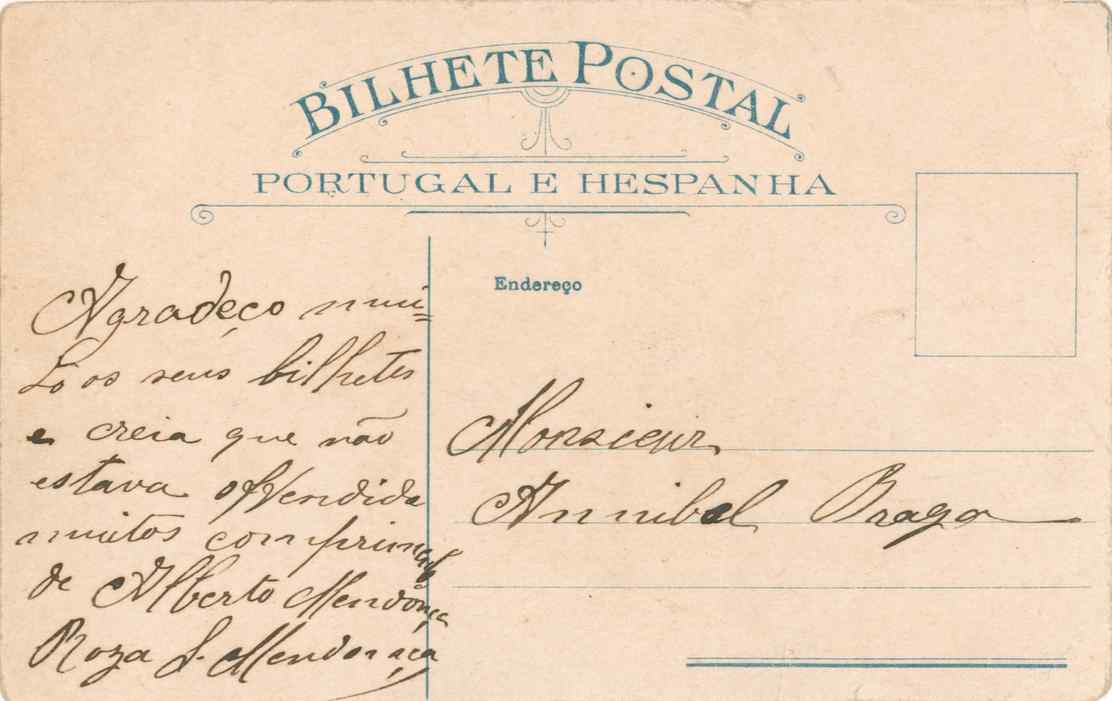 BILHETE POSTAL
PORTUGAL E HESPANHA
Endereço
Agradeço mui=
to os seus bilhetes
e creia que não
estava offendida
muitos comprimtos
de Alberto Mendonça
Roza S. Mendonça
Monsieur
Annibal Braga